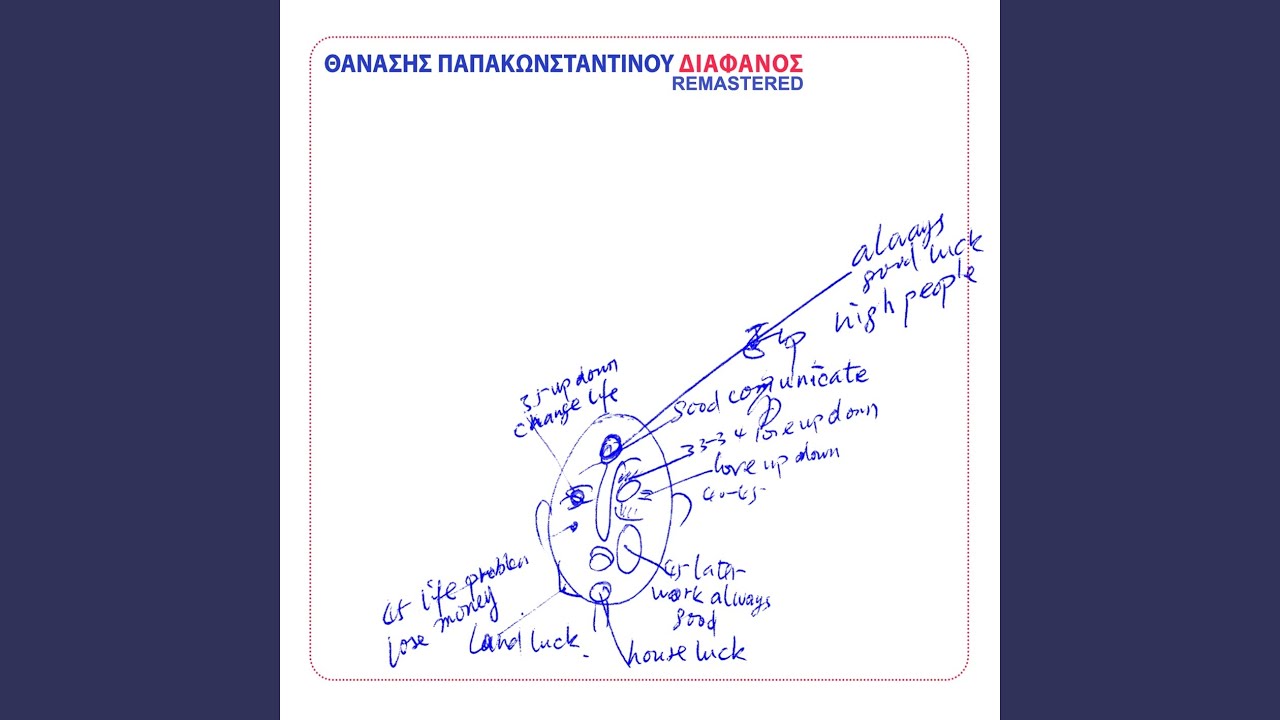 ΘΑΝΑΣΗΣ ΠΑΠΑΚΩΝΣΤΑΝΤΙΝΟΥ ΔΙΑΦΑΝΟΣ
REMASTERED
always
good luck
high people
up
35 up down
change life
good comunicate
33-34 love up down
love up down
40-45
45 life problem
lose money
Land luck.
45 later
work always
good
house luck